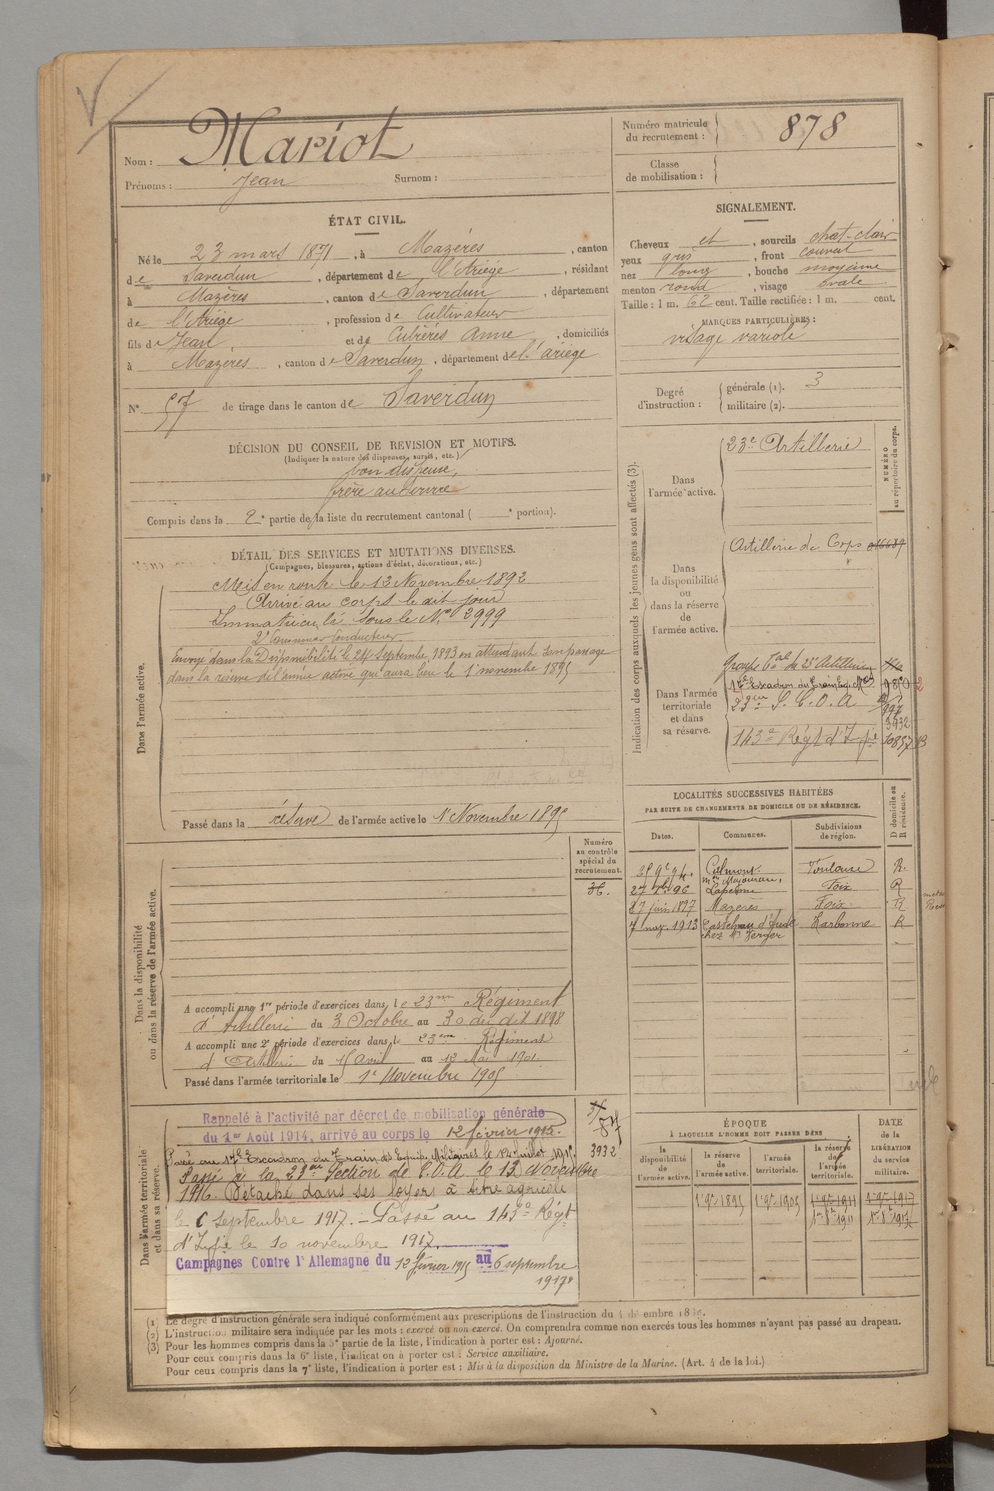 Nom : Mariot
Prénoms : Jean Surnom :
Numéro matricule du recrutement : 878
Classe de mobilisation :
ÉTAT CIVIL.
Né le 23 mars 1871, à Mazères, canton
de Saverdun, département de l'Ariège, résidant
à Mazères, canton de Saverdun, département
de l'Ariège, profession de Cultivateur
fils de Jean et de Cubières Anne, domiciliés
à Mazères, canton de Saverdun, département de l'ariège
N° 57 de tirage dans le canton de Saverdun
SIGNALEMENT.
Cheveux et, sourcils chat-clair
yeux gris, front couvert
nez long, bouche moyenne
menton rond, visage ovale
Taille : 1 m. 62 cent. Taille rectifiée : 1 m. cent.
MARQUES PARTICULIÈRES :
visage variolé
Degré d'instruction : générale (1). 3
militaire (2).
DÉCISION DU CONSEIL DE REVISION ET MOTIFS.
(Indiquer la nature des dispenses, sursis, etc.)
bon dispensé,
frère au service
Compris dans la 2e partie de la liste du recrutement cantonal ( e portion).
DÉTAIL DES SERVICES ET MUTATIONS DIVERSES.
(Campagnes, blessures, actions d'éclat, décorations, etc.)
Dans l'armée active.
Mis en route le 12 Novembre 1892
Arrivé au corps le dit jour
Immatriculé sous le No 2999
2e Canonnier Conducteur
Envoyé dans la Disponibilité le 24 Septembre 1893 en attendant son passage
dans la réserve de l'armée active qui aura lieu le 1er novembre 1895
Passé dans la réserve de l'armée active le 1er Novembre 1895
Indication des corps auxquels les jeunes gens sont affectés (3).
NUMÉRO au répertoire du corps.
Dans l'armée active.
23e Artillerie
Dans la disponibilité ou dans la réserve de l'armée active.
Artillerie de Corps
Dans l'armée territoriale et dans sa réserve.
Groupe Tal du 23e Artillerie
17e Escadron du Train Eq. Mres
23eme S. C. O. A
3932
143e Regt d'Infie
LOCALITÉS SUCCESSIVES HABITÉES
PAR SUITE DE CHANGEMENTS DE DOMICILE OU DE RÉSIDENCE.
Dates. Communes. Subdivisions de région. D domicile ou R résidence.
Calmont Toulouse R.
27 96 Foix R
17 juin 1897 Mazères Foix R
7 1913 Castelnau d'Aude Narbonne R
chez Mr
Numéro au contrôle spécial du recrutement.
Dans la disponibilité ou dans la réserve de l'armée active.
A accompli une 1re période d'exercices dans le 23eme Régiment
d'Artillerie du 3 Octobre au 30 du dit 1898
A accompli une 2e période d'exercices dans le 23eme Régiment
d'Artillerie du 15 Avril au 12 Mai 1901
Passé dans l'armée territoriale le 1er Novembre 1905
Dans l'armée territoriale et dans sa réserve.
Rappelé à l'activité par décret de mobilisation générale
du 1er Août 1914, arrivé au corps le 12 février 1915.
Passé au 17e Escadron du Train des Equip. Militaires le 14 juillet 1915.
Passé à la 23eme Section de C.O.A le 13 Novembre
1916. Détaché dans ses foyers à titre agricole
le 6 septembre 1917. — Passé au 143e Régt
d'Infie le 10 novembre 1917
Campagnes Contre l'Allemagne du 12 février 1915 au 6 septembre
1917
3932
ÉPOQUE
À LAQUELLE L'HOMME DOIT PASSER DANS
la disponibilité de l'armée active. la réserve de l'armée active. l'armée territoriale. la réserve de l'armée territoriale.
DATE de la LIBÉRATION du service militaire.
1er 9bre 1895 1er 9bre 1905 1er 9bre 1911 1er 9bre 1917
1er 8bre 1911 1er 8bre 1917
(1) Le degré d'instruction générale sera indiqué conformément aux prescriptions de l'instruction du 4 décembre 1889.
(2) L'instruction militaire sera indiquée par les mots : exercé ou non exercé. On comprendra comme non exercés tous les hommes n'ayant pas passé au drapeau.
(3) Pour les hommes compris dans la 5e partie de la liste, l'indication à porter est : Ajourné.
Pour ceux compris dans la 6e liste, l'indication à porter est : Service auxiliaire.
Pour ceux compris dans la 7e liste, l'indication à porter est : Mis à la disposition du Ministre de la Marine. (Art. 4 de la loi.)